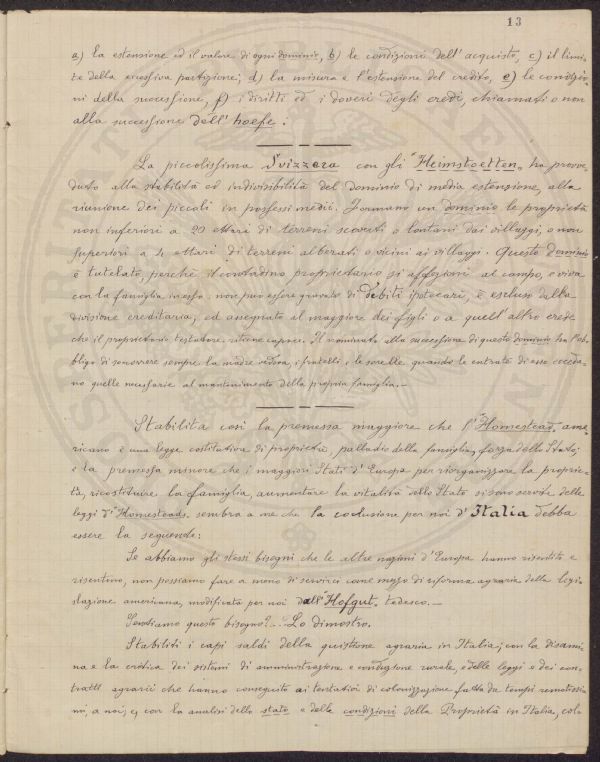 13
a) la estensione ed il valore di ogni dominio, b) le condizioni dell'acquisto, c) il limi-
te della excessiva partizione; d) la misura e l'estensione del credito, e) le condizio-
ni della successione, f) i diritti ed i doveri degli eredi, chiamati o non
alla successione dell'hoefe.
La piccolissima Svizzera con gli "Heimstaetten" ha prove-
duto alla stabilità ed indivisibilità del dominio di media estensione, alla
riunione dei piccoli in possessi medii. Formano un dominio le proprietà
non inferiori a 20 ettari di terreni scoverti o lontani dai villaggi, o non
superiori a 4 ettari di terreni alberati o vicini ai villaggi. Questo dominio
è tutelato, perchè il contadino proprietario si affezioni al campo, e viva
con la famiglia in esso: non può essere gravato di debiti ipotecari, è escluso dalla
divisione ereditaria; ed assegnato al maggiore dei figli o a quell'altro erede
che il proprietario testatore, ritiene capace. Il nominato alla successione di questo dominio ha l'ob-
bligo di soccorrere sempre la madre vedova, i fratelli e le sorelle quando le entrate di esse eccedo-
no quelle necessarie al mantenimento della propria famiglia.—
Stabilita così la premessa maggiore che l'"Homestead" ame-
ricano è una legge costitutiva di proprietà, palladio della famiglia, forza dello Stato;
e la premessa minore che i maggiori Stati d'Europa per riorganizzare la proprie-
tà, ricostituire la famiglia, aumentare la vitalità dello Stato si sono servite delle
leggi d'"Homesteads" sembra a me che la conclusione per noi d'Italia debba
essere la seguente:
Se abbiamo gli stessi bisogni che le altre nazioni d'Europa hanno risentito e
risentono, non possiamo fare a meno di servirci come mezzo di riforma agraria della legi-
slazione americana, modificata per noi dall'"Hofgut" tedesco.—
Sentiamo questo bisogno?... Lo dimostro.
Stabiliti i capi saldi della quistione agraria in Italia; con la disami-
na e la critica dei sistemi di amministrazione e conduzione rurale, e delle leggi e dei con-
tratti agrarii che hanno conseguito ai tentativi di colonizzazione fatta da tempi remotissi-
mi, a noi; e, con la analisi dello stato e delle condizioni della Proprietà in Italia, colo